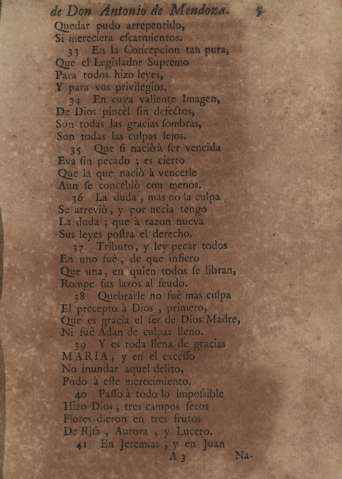 de Don Antonio de Mendoza. 5
Quedar pudo arrepentido,
Si mereciera escarmientos.
33 En la Concepcion tan pura,
Que el Legislador Supremo
Para todos hizo leyes,
Y para vos privilegios.
34 En cuya valiente Imagen,
De Dios pincel sin defectos,
Son todas las gracias sombras,
Son todas las culpas lejos.
35 Que si naciò à ser vencida
Eva sin pecado; es cierto
Que la que naciò à vencerle
Aun se concebiò con menos.
36 La duda, mas no la culpa
Se atreviò, y por necia tengo
La duda; que à razon nueva
Sus leyes postra el derecho.
37 Tributo, y ley pecar todos
En uno fuè, de que infiero
Que una, en quien todos se libran,
Rompe sus lazos al feudo.
38 Quebrarle no fuè mas culpa
El precepto à Dios, primero,
Que es gracia el ser de Dios Madre,
Ni fuè Adan de culpas lleno.
39 Y es toda llena de gracias
MARIA, y en el excesso
No inundar aquel delito,
Pudo à este merecimiento.
40 Passò à todo lo impossible
Hizo Dios; tres campos secos
Flores dieron en tres frutos
De Rosa, Aurora, y Lucero.
41 En Jeremias, y en Juan
A 3 Na-